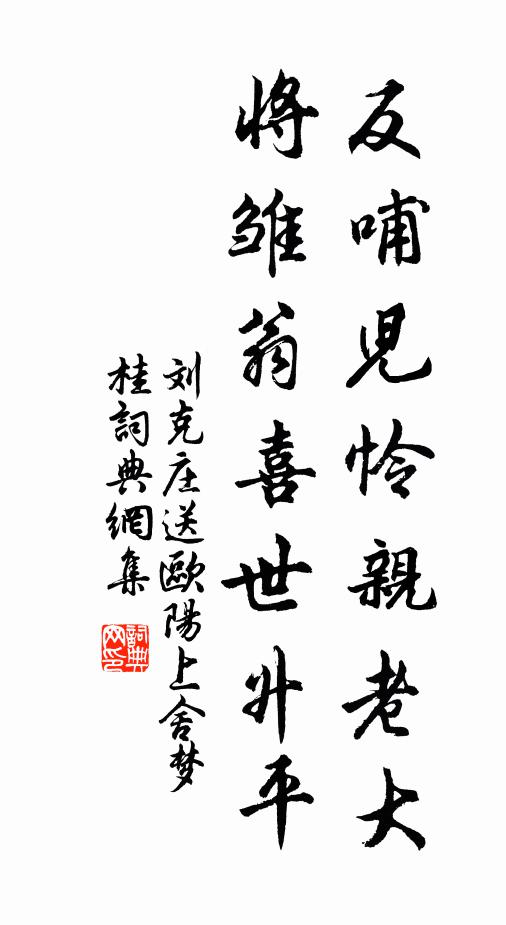 反哺兒怜親老大
将雏翁喜世升平
刘克庄送歐陽上舍梦
桂詞典網集
詞典网印